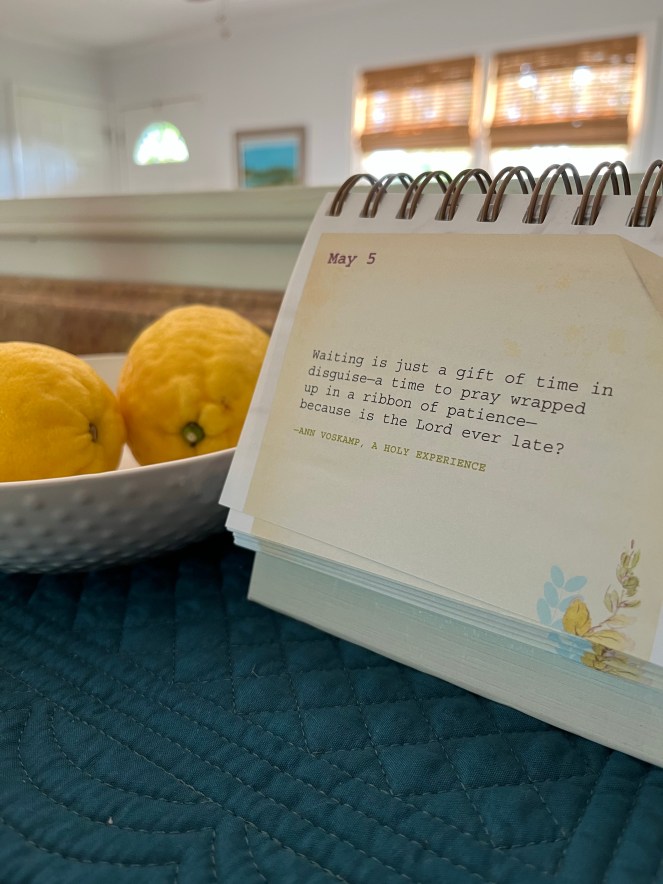 May 5
Waiting is just a gift of time in
disguise—a time to pray wrapped
up in a ribbon of patience—
because is the Lord ever late?
—ANN VOSKAMP, A HOLY EXPERIENCE